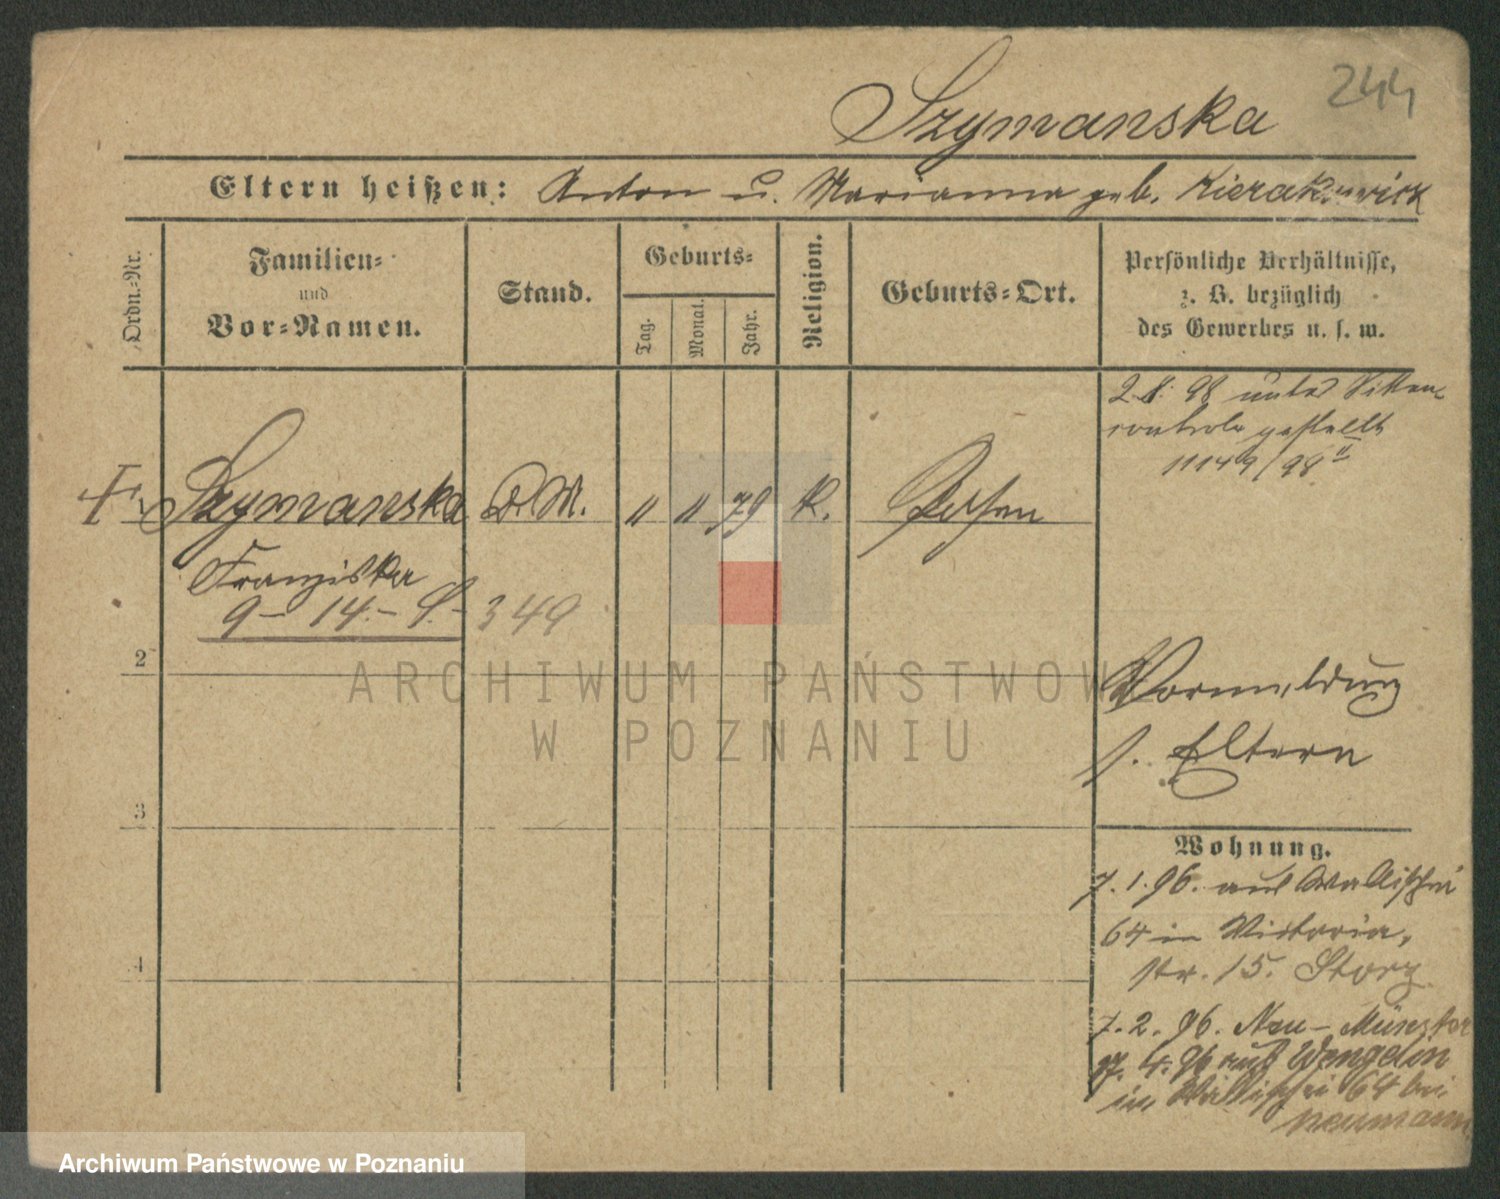 244
Szymanska
Eltern heißen: Anton u. Marianna geb. Kierakowicz
Ordn.-Nr.
Familien-
und
Vor-Namen.
Stand.
Geburts-
Tag.
Monat.
Jahr.
Religion.
Geburts-Ort.
Persönliche Verhältnisse,
z. B. bezüglich
des Gewerbes u. s. w.
2.8.98 unter Sitten-
controle gestellt
11149/98 II
Szymanska D.M. " " 79 K. Posen
Franziska
9 - 14. - S. - 349
2
Vormeldung
s. Eltern
3
Wohnung.
7.1.96. aus Wallischei
64 in Victoria-
str. 15. Story
4
7.2.96. Neu-Münster
4.96 aus Wengelin
in Wallischei 64 bei
Neumann
ARCHIWUM PAŃSTWOWE
W POZNANIU
Archiwum Państwowe w Poznaniu